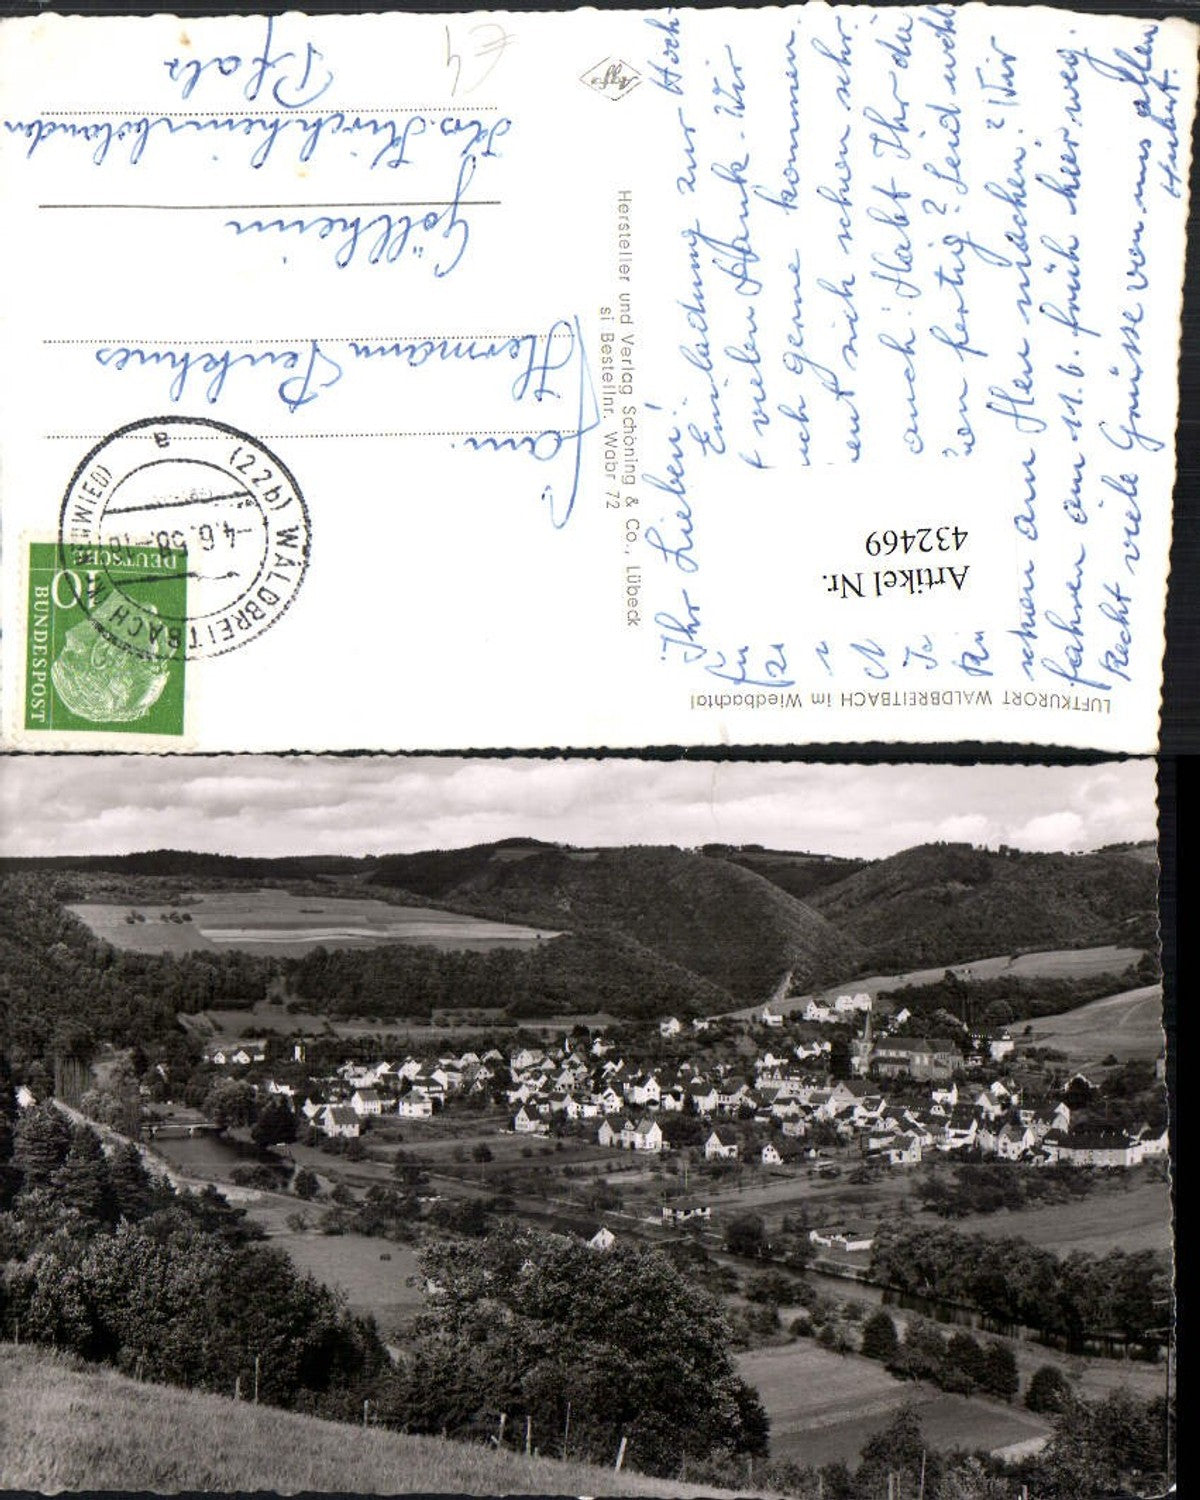 LUFTKURORT WALDBREITBACH im Wiedbachtal
Ihr Lieben!
Einladung zur Hoch-
vielen Dank. Wir
gerne kommen.
sich schon sehr.
auch. Habt Ihr die
fertig? Seid wohl
schon am Heu machen? Wir
fahren am 11.6. früh hier weg.
Recht viele Grüsse von uns allen
Hubert.
Artikel Nr.
432469
Hersteller und Verlag Schöning & Co., Lübeck
si Bestellnr. Wabr 72
Agfa
€4
DEUTSCHE
BUNDESPOST
10
(22b) WALDBREITBACH
-4.6.58.-18
a
Fam.
Hermann
Göllheim
Krs. Kirchheimbolanden
Pfalz